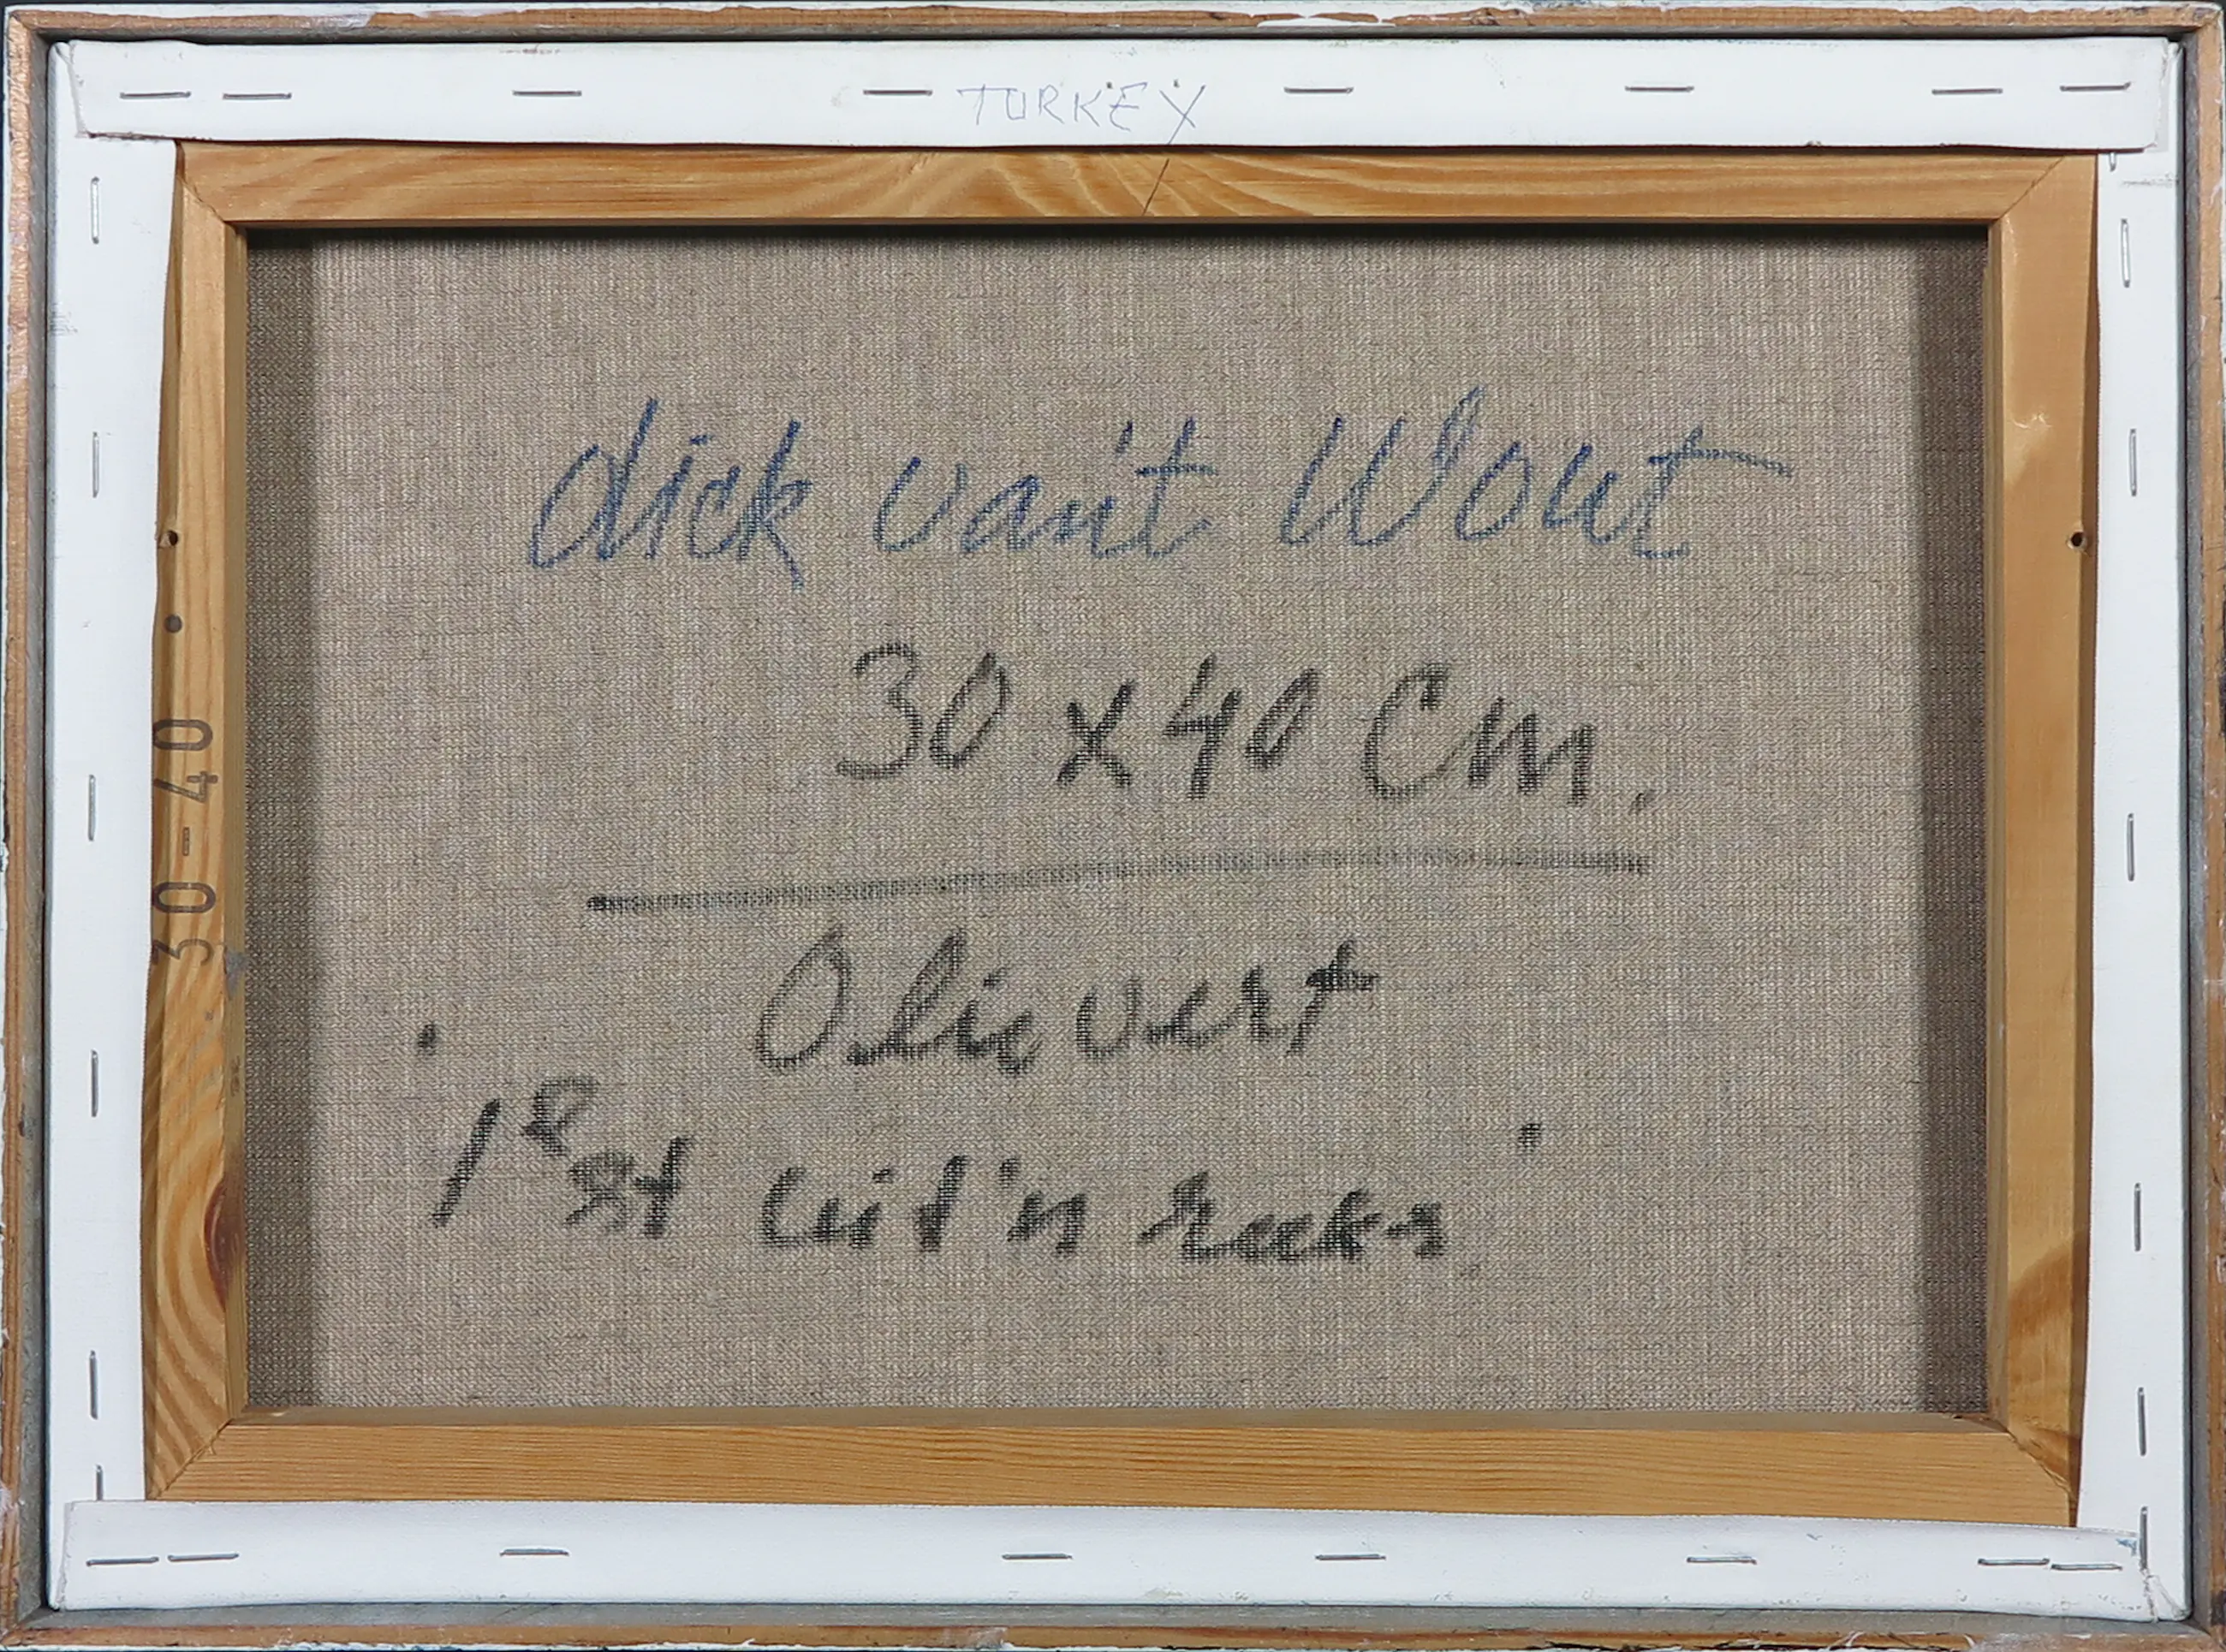 TURKEY
dick van't Wout
30 x 40 Cm.
Olieverf
1e st uit 'n reeks
30-40